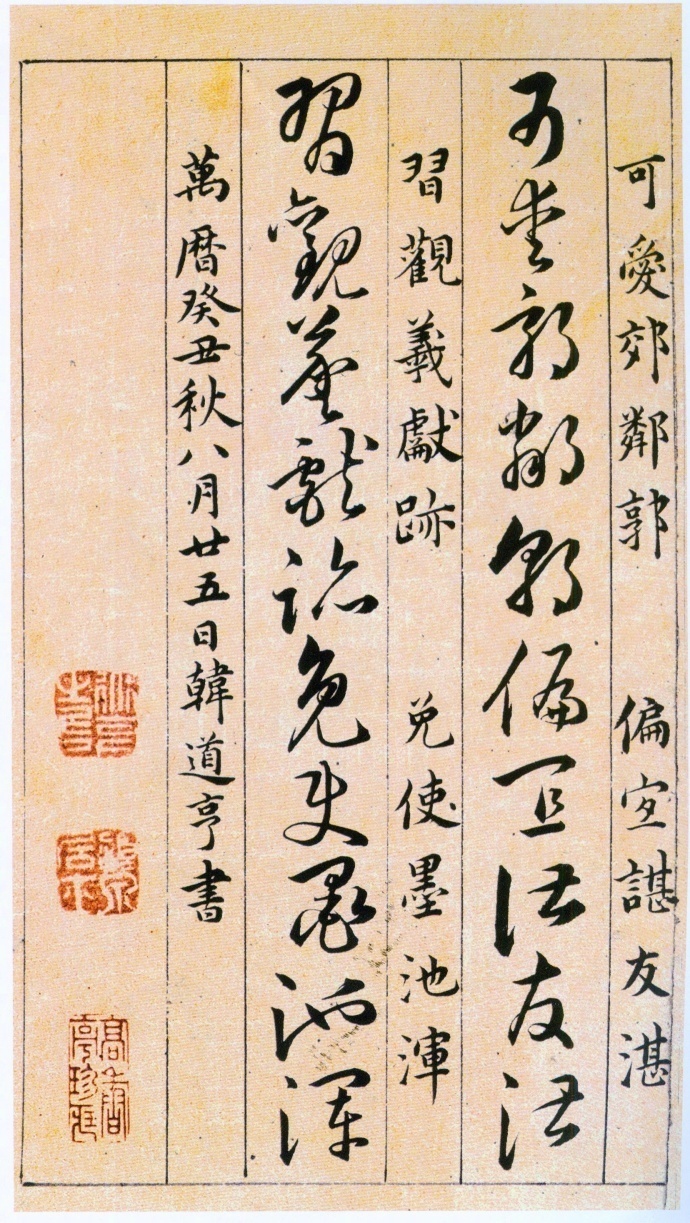 可愛郊鄰郭 偏宜諶友湛
可愛郊鄰郭偏宜諶友湛
習觀羲獻跡 免使墨池渾
習觀羲獻跡免使墨池渾
萬暦癸丑秋八月廿五日韓道亨書